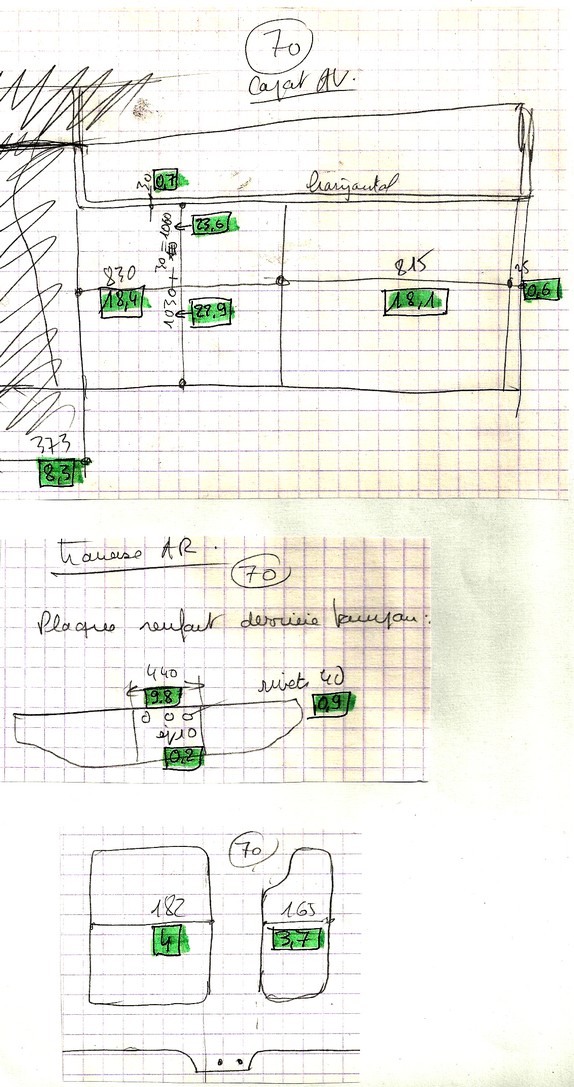 70
Capot AV.
20
0,7
horizontal
1060
23,6
30
830
18,4
815
18,1
25
0,6
1030
22,9
373
8,3
traverse AR.
70
Plaque renfort derrière tampon:
440
9.8
rivets 40
0,9
ep 10
0,2
70
182
4
165
3,7